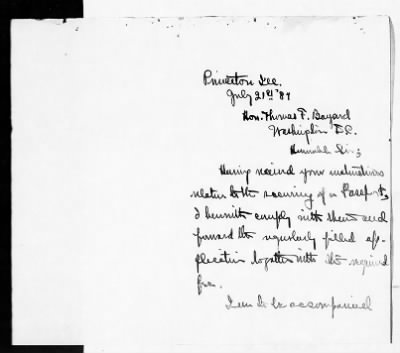 Princeton Ill.
July 21st '87
Hon. Thomas F. Bayard
Washington D.C.
Honorable Sir;
Having received your instructions
relative to the securing of a Passport,
I herewith comply with them and
forward the regularly filled ap-
plication together with the required
fee.
I am to be accompanied